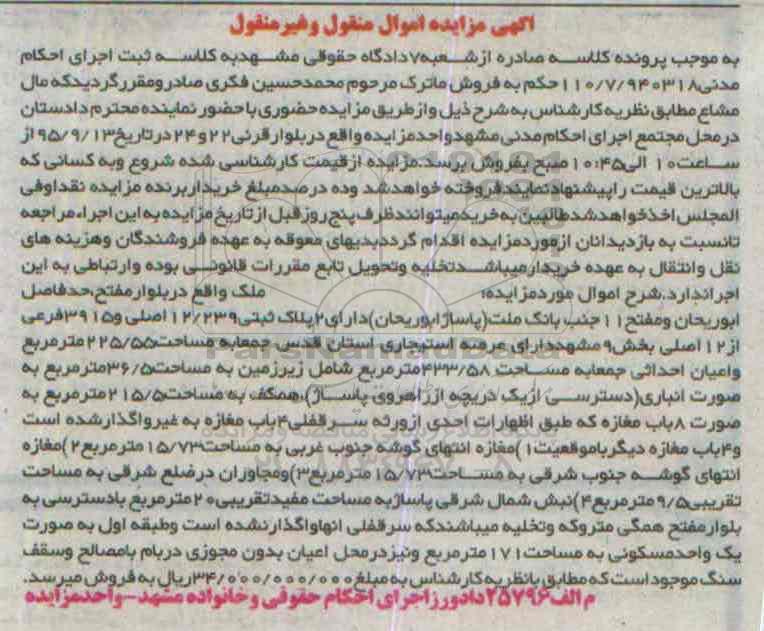 آگهی مزایده اموال منقول وغیرمنقول
به موجب پرونده کلاسه صادره ازشعبه۷دادگاه حقوقی مشهدبه کلاسه ثبت اجرای احکام
مدنی۱۱۰/۷/۹۴۰۳۱۸حکم به فروش ماترک مرحوم محمدحسین فکری صادرومقررگردیدکه مال
مشاع مطابق نظریه کارشناس به شرح ذیل وازطریق مزایده حضوری باحضور نماینده محترم دادستان
درمحل مجتمع اجرای احکام مدنی مشهدواحدمزایده واقع دربلوارقرنی۲۲و۲۴درتاریخ۹۵/۹/۱۳ از
ساعت۱۰ الی۱۰:۴۵صبح بفروش برسد.مزایده ازقیمت کارشناسی شده شروع وبه کسانی که
بالاترین قیمت راپیشنهادنمایندفروخته خواهدشد وده درصدمبلغ خریداربرنده مزایده نقداوفی
المجلس اخذخواهدشدطالبین به خریدمیتوانندظرف پنج روزقبل ازتاریخ مزایده به این اجراءمراجعه
تانسبت به بازدیدانان ازموردمزایده اقدام گرددبدیهای معوقه به عهده فروشندگان وهزینه های
نقل وانتقال به عهده خریدارمیباشدتخلیه وتحویل تابع مقررات قانونی بوده وارتباطی به این
اجراندارد.شرح اموال موردمزایده: ملک واقع دربلوارمفتح،حدفاصل
ابوریحان ومفتح۱۱جنب بانک ملت(پاساژابوریحان)دارای۲پلاک ثبتی۱۲/۲۳۹ اصلی و۳۹۱۵فرعی
از۱۲اصلی بخش۹مشهددارای عرصه استیجاری استان قدس جمعابه مساحت۲۲۵/۵۵مترمربع
واعیان احداثی جمعابه مساحت ۴۳۳/۵۸مترمربع شامل زیرزمین به مساحت۳۶/۵مترمربع به
صورت انباری(دسترسی ازیک دریچه ازراهروی پاساژ)،همکف به مساحت۲۱۵/۵مترمربع به
صورت ۸باب مغازه که طبق اظهارات احدی ازورثه سرقفلی۴باب مغازه به غیرواگذارشده است
و۴باب مغازه دیگرباموقعیت۱)مغازه انتهای گوشه جنوب غربی به مساحت۱۵/۷۳مترمربع۲)مغازه
انتهای گوشه جنوب شرقی به مساحت۱۵/۷۳مترمربع۳)ومجاوران درضلع شرقی به مساحت
تقریبی۹/۵مترمربع۴)نبش شمال شرقی پاساژبه مساحت مفیدتقریبی۲۰مترمربع بادسترسی به
بلوارمفتح همگی متروکه وتخلیه میباشندکه سرقفلی انهاواگذارنشده است وطبقه اول به صورت
یک واحدمسکونی به مساحت۱۷۱مترمربع ونیزدرمحل اعیان بدون مجوزی دربام بامصالح وسقف
سنگ موجوداست که مطابق بانظریه کارشناس به مبلغ۳۴/۰۰۰/۰۰۰/۰۰۰ریال به فروش میرسد.
م الف۲۵۷۹۶دادورزاجرای احکام حقوقی وخانواده مشهد-واحدمزایده
ParsNamadData